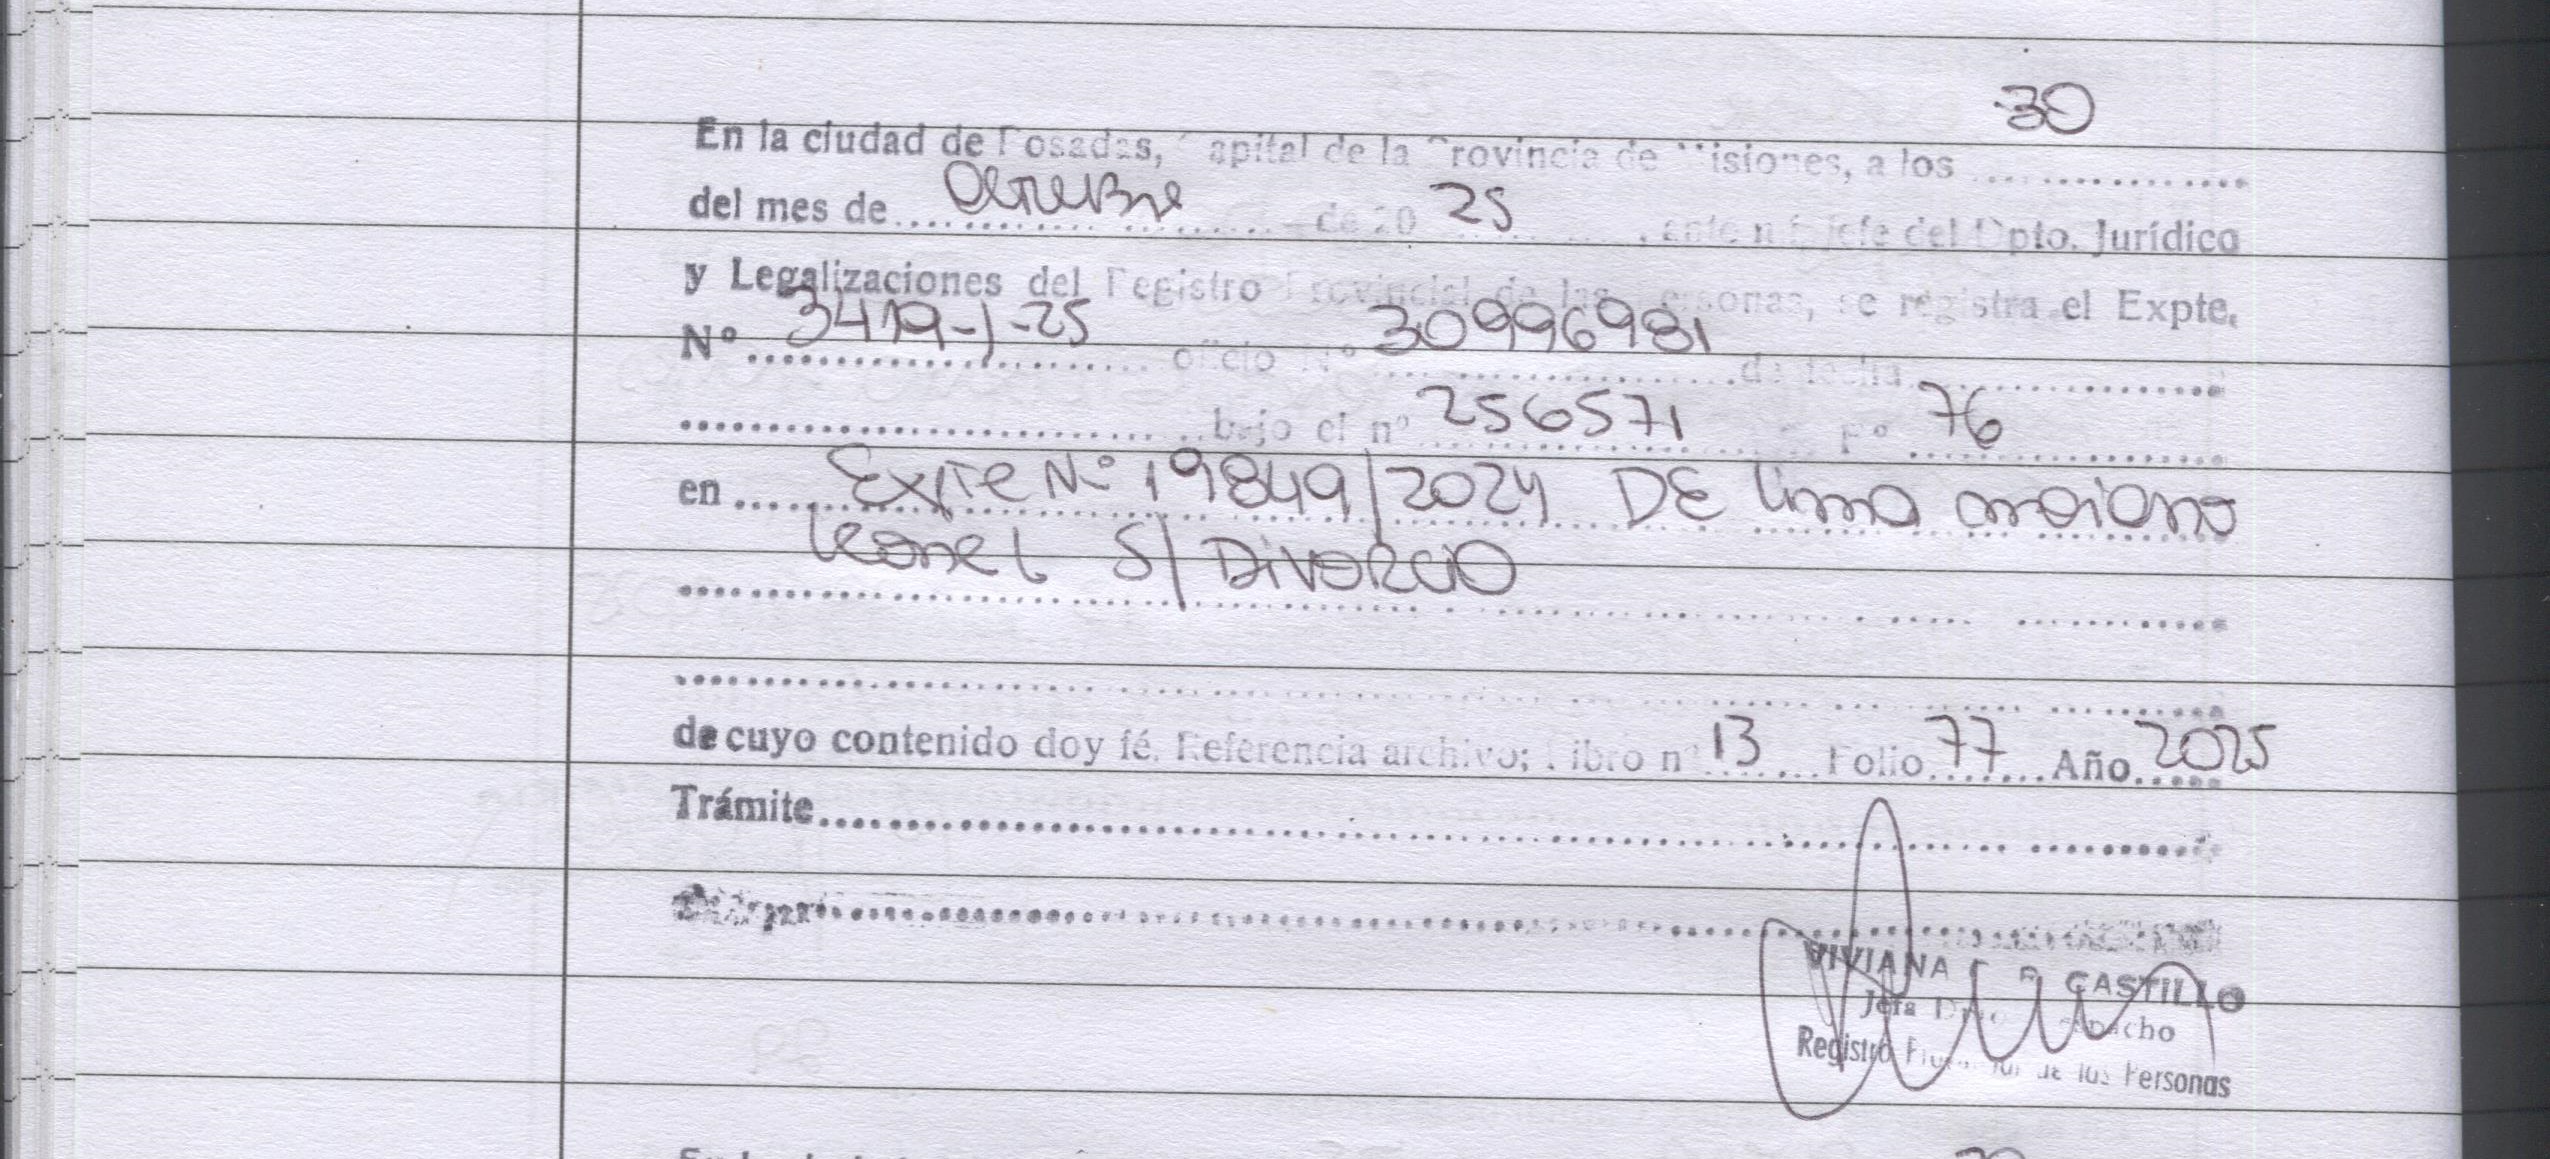 30
En la ciudad de Posadas, Capital de la Provincia de Misiones, a los ................
del mes de ........ Octubre ........ de 20 25 ........, ante mí, jefe del Dpto. Jurídico
y Legalizaciones del Registro Provincial de las Personas, se registra el Expte.
Nº ........ 3419-J-25 ........ oficio Nº ........ 30996981 ........ de fecha ................
................ bajo el nº ........ 256571 ........ Fº ........ 76
en ........ Expte Nº 19849/2024 DE Lima mariano
Leonel S/ Divorcio
de cuyo contenido doy fé. Referencia archivo; Libro nº 13 Folio 77 Año 2025
Trámite................
VIVIANA CASTILLO
Jefa Dpto. Despacho
Registro Provincial de las Personas